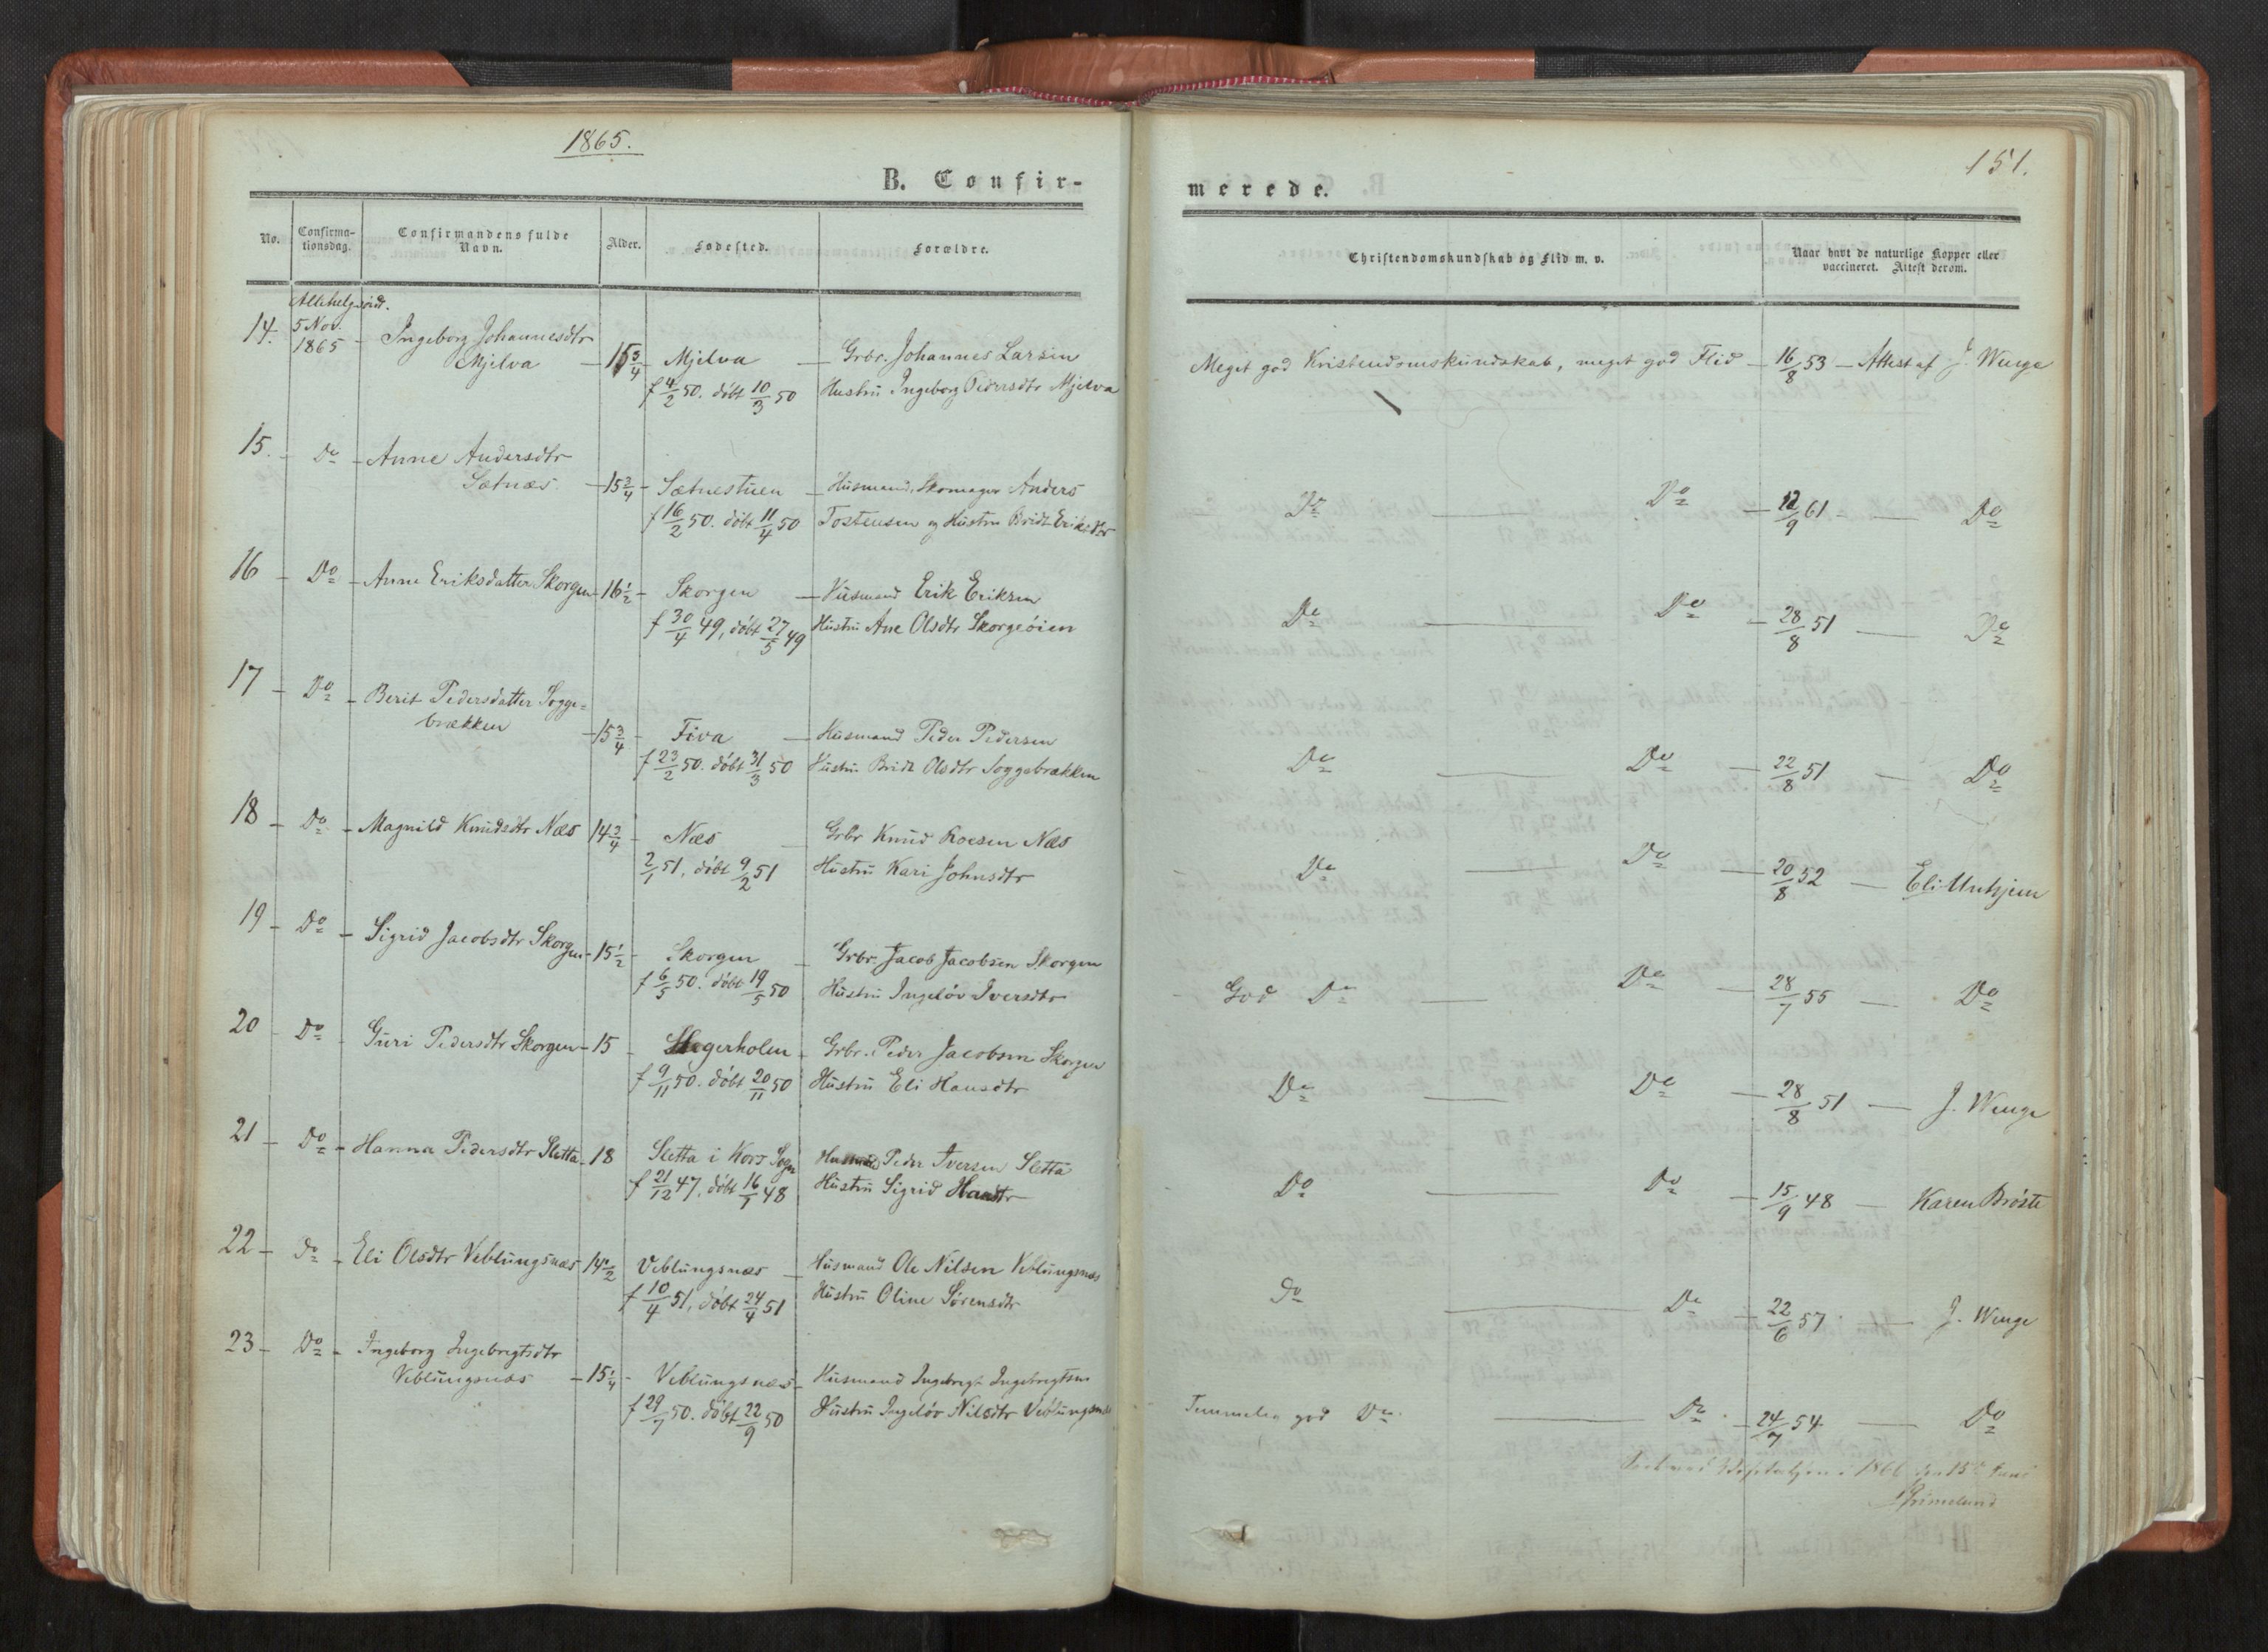 1865.
B. Confir-
No. Confirma-tionsdag. Confirmandens fulde Navn. Alder. Fødested. Forældre.
Allehelgensd.
14. 5 Nov. 1865 - Ingeborg Johannesdtr
Mjelva - 15 3/4 - Mjelva - Grbr. Johannes Larsen
f 4/2 50. døbt 10/3 50 Hustru Ingeborg Pedersdtr Mjelva
15. - Do - Anne Andersdtr
Sætnæs - 15 3/4 - Sætnestuen - Husmand, Skomager Anders
f 16/2 50. døbt 11/4 50 Tostensen og Hustru Bridt Eriksdtr
16 - Do - Anne Eriksdatter Skorgen - 16 1/2 - Skorgen - Husmand Erik Eriksen
f 30/4 49, døbt 27/5 49 Hustru Ane Olsdtr Skorgeøien
17 - Do - Berit Pedersdatter Sogge=
brækken - 15 3/4 - Fiva - Husmand Peder Pedersen
f 23/2 50. døbt 31/3 50 Hustru Bridt Olsdtr Soggebrækken
18 - Do - Magnild Knudsdtr Næs 14 3/4 - Næs - Grbr Knud Roesen Næs
2/1 51, døbt 9/2 51 Hustru Kari Johnsdtr
19 - Do - Sigrid Jacobsdtr Skorgen - 15 1/2 - Skorgen - Grbr. Jacob Jacobsen Skorgen
f 6/5 50. døbt 19/5 50 Hustru Ingeløv Iversdtr
20 - Do - Guri Pedersdtr Skorgen - 15 - Slegerholen - Grbr. Peder Jacobsen Skorgen
f 9/11 50. døbt 20/11 50 Hustru Eli Hansdtr
21 - Do - Hanna Pedersdtr Sletta - 18 Sletta i Kors Sogn Husmand Peder Iversen Sletta
f 21/12 47, døbt 16/1 48 Hustru Sigrid Hansdtr
22 - Do - Eli Olsdtr Veblungsnæs 14 1/2 Veblungsnæs - Husmand Ole Nilsen Veblungsnæs
f 10/4 51, døbt 24/4 51 Hustru Oline Sørensdtr
23 - Do - Ingeborg Ingebregtsdtr
Veblungsnæs - 15 1/4 - Veblungsnæs - Husmand Ingebregt Ingebregtsen
f 29/7 50. døbt 22/9 50 Hustru Ingeløv Nilsdtr Veblungsnæs
151.
merede.
Christendomskundskab og Flid m. v. Naar havt de naturlige Kopper eller vaccineret. Attest derom.
Meget god Kristendomskundskab, meget god Flid - 16/8 53 - Attest af J. Wenge
Do Do - 12/9 61 - Do
Do Do - 28/8 51 - Do
Do Do - 22/8 51 - Do
Do Do - 20/8 52 - Eli Unhjem
God Do Do - 28/7 55 - Do
Do Do - 28/8 51 - J. Wenge
Do Do - 15/9 48 - Karen Brøste
Do Do - 22/6 57 - J. Wenge
Temmelig god Do. Do - 24/7 54 - Do
Seet ved Visitatsen i 1866 den 15de Juni
Grimelund